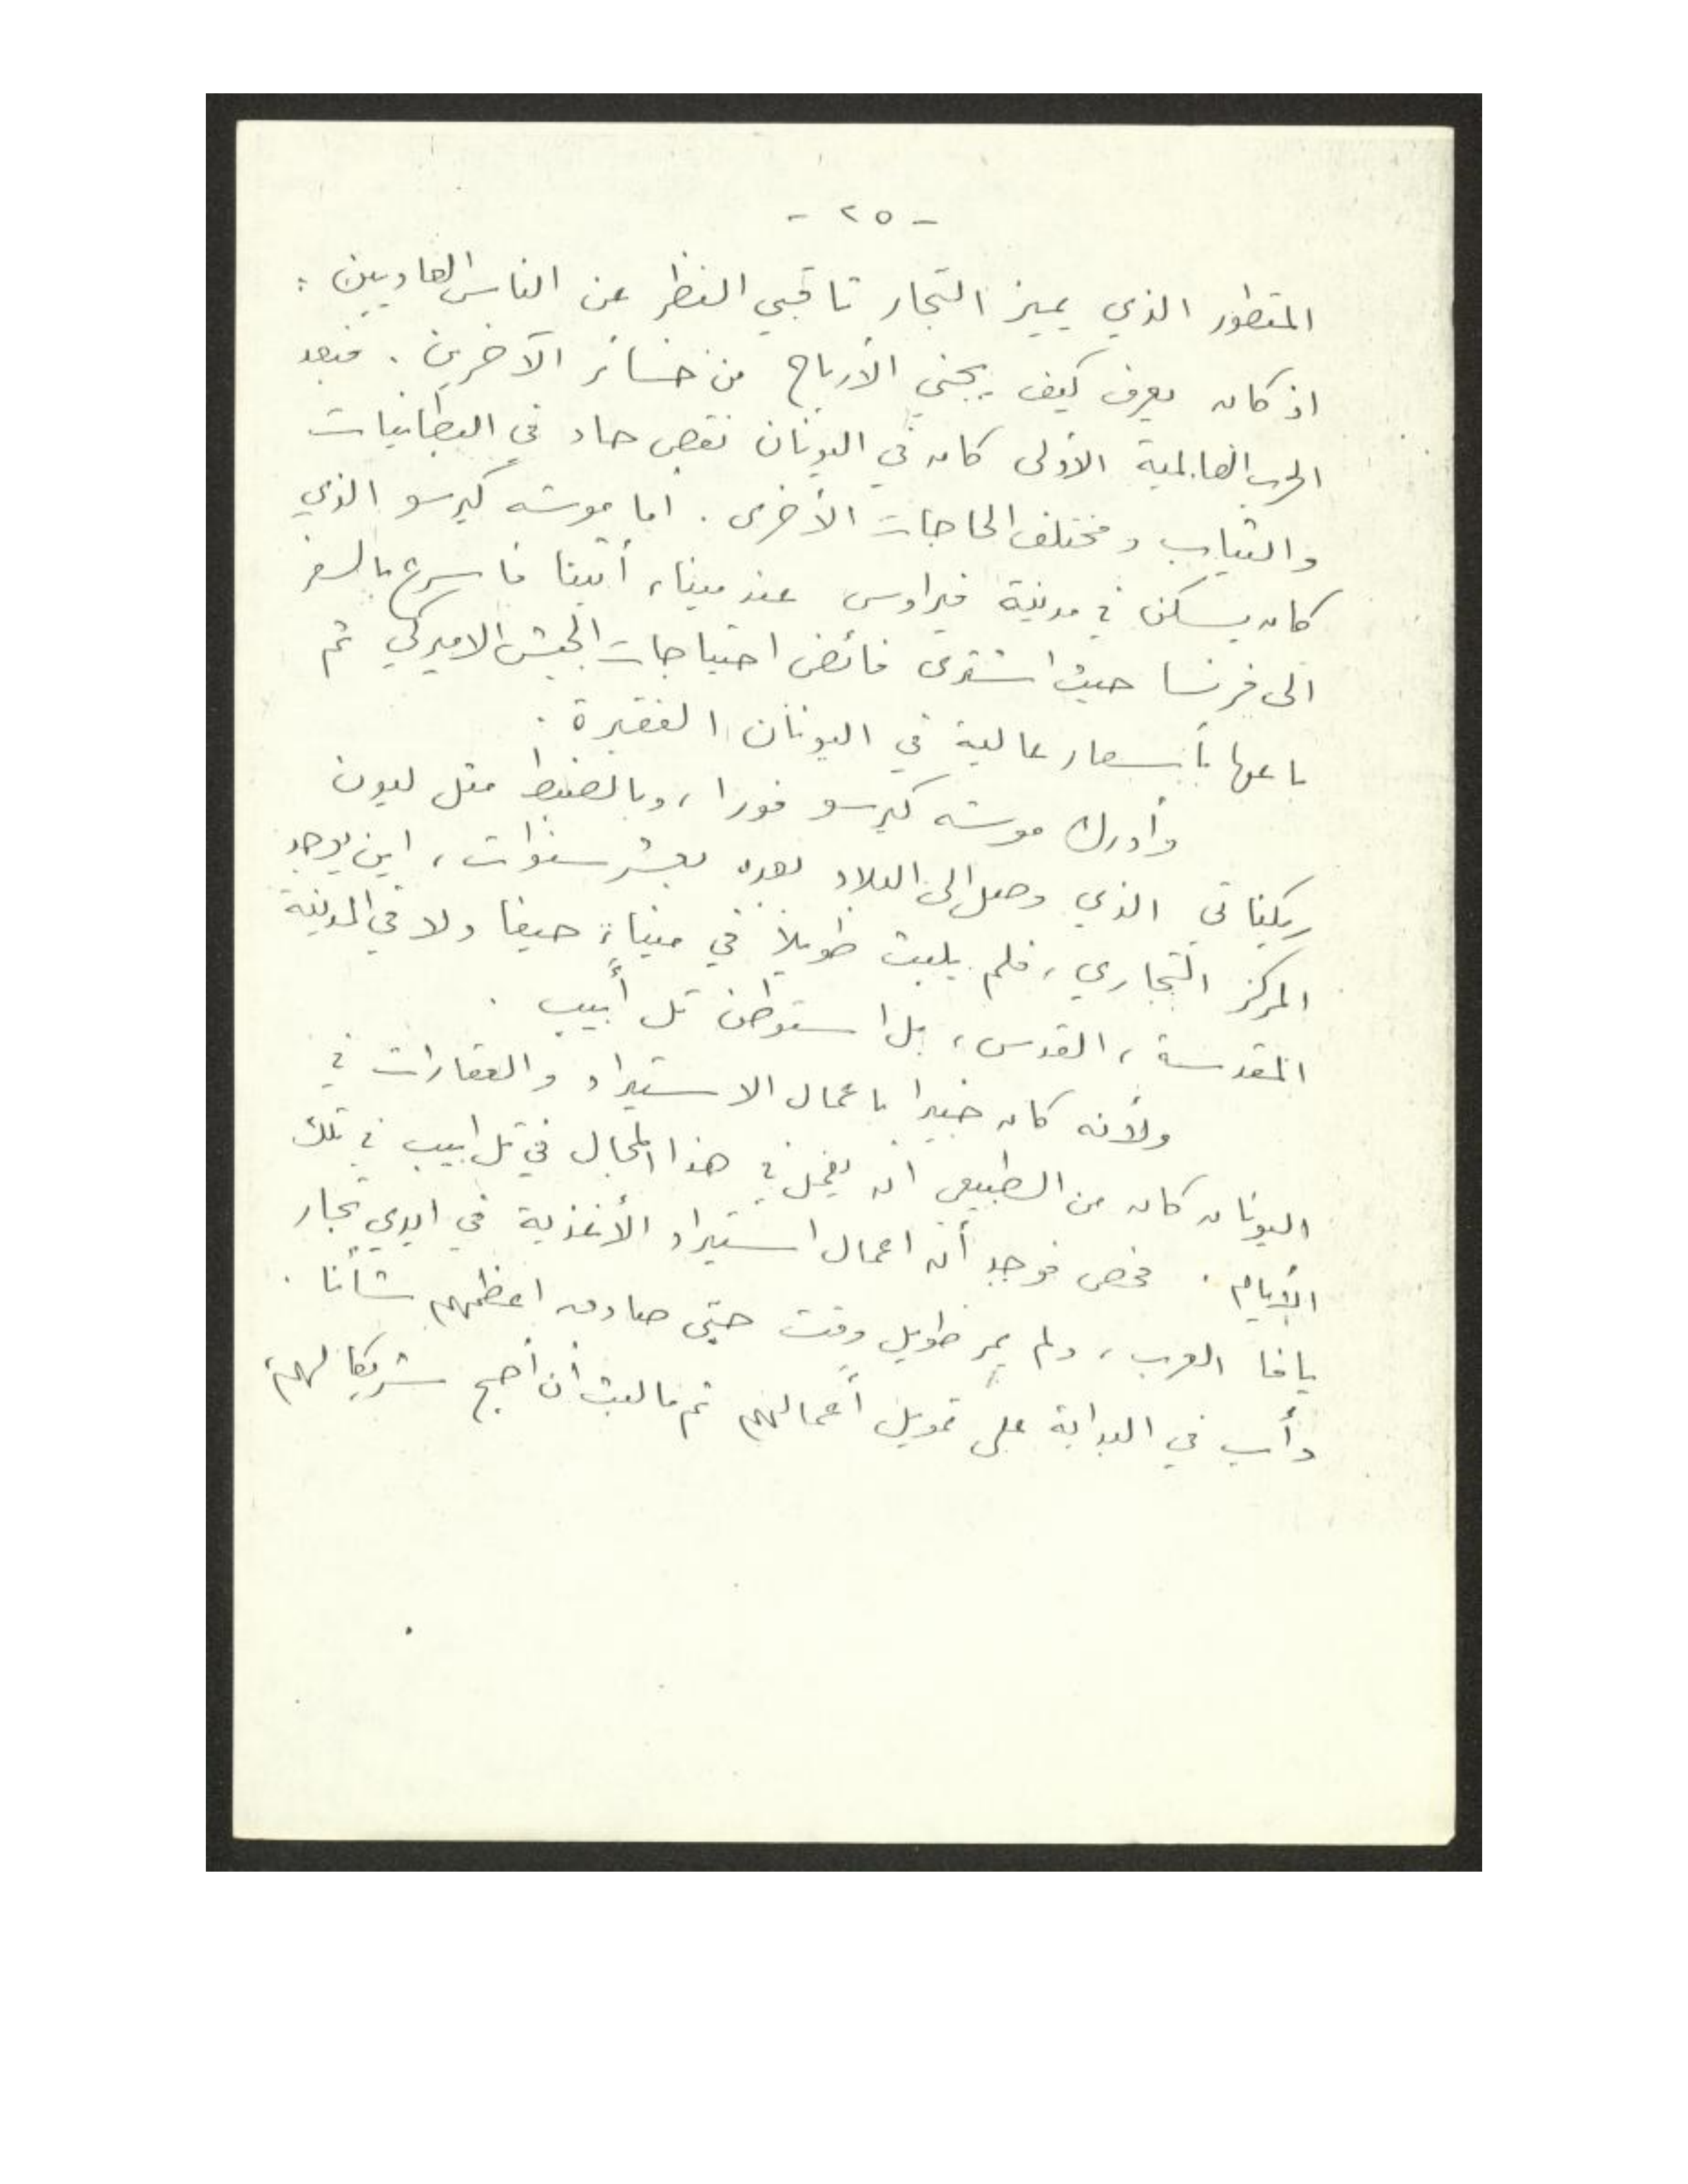 - ٢٥ -
المتطور الذي يميز التجار ثاقبي النظر عن الناس العاديين :
اذ كان يعرف كيف يجني الأرباح من خسائر الآخرين . فبعد
الحرب العالمية الأولى كان في اليونان نقص حاد في البطانيات
والثياب ومختلف الحاجات الأخرى . اما موشه كرسو الذي
كان يسكن في مدينة فيراوس عند ميناء أثينا فاسرع بالسفر
الى فرنسا حيث اشترى فائض احتياجات الجيش الاميركي ثم
باعها بأسعار عالية في اليونان الفقيرة .
وأدرك موشه كرسو فورا ، وبالضبط مثل ليون
ريكناتي الذي وصل الى البلاد بعده بعشر سنوات ، اين يوجد
المركز التجاري ، فلم يلبث طويلاً في ميناء حيفا ولا في المدينة
المقدسة ، القدس ، بل استوطن تل أبيب .
ولأنه كان خبيرا باعمال الاستيراد والعقارات في
اليونان كان من الطبيعي ان يعمل في هذا المجال في تل ابيب في تلك
الأيام . فحص فوجد أن اعمال استيراد الأغذية في ايدي تجار
يافا العرب ، ولم يمر طويل وقت حتى صادق اعظمهم شأنا .
دأب في البداية على تمويل أعمالهم ثم ما لبث أن أصبح شريكا لهم ،